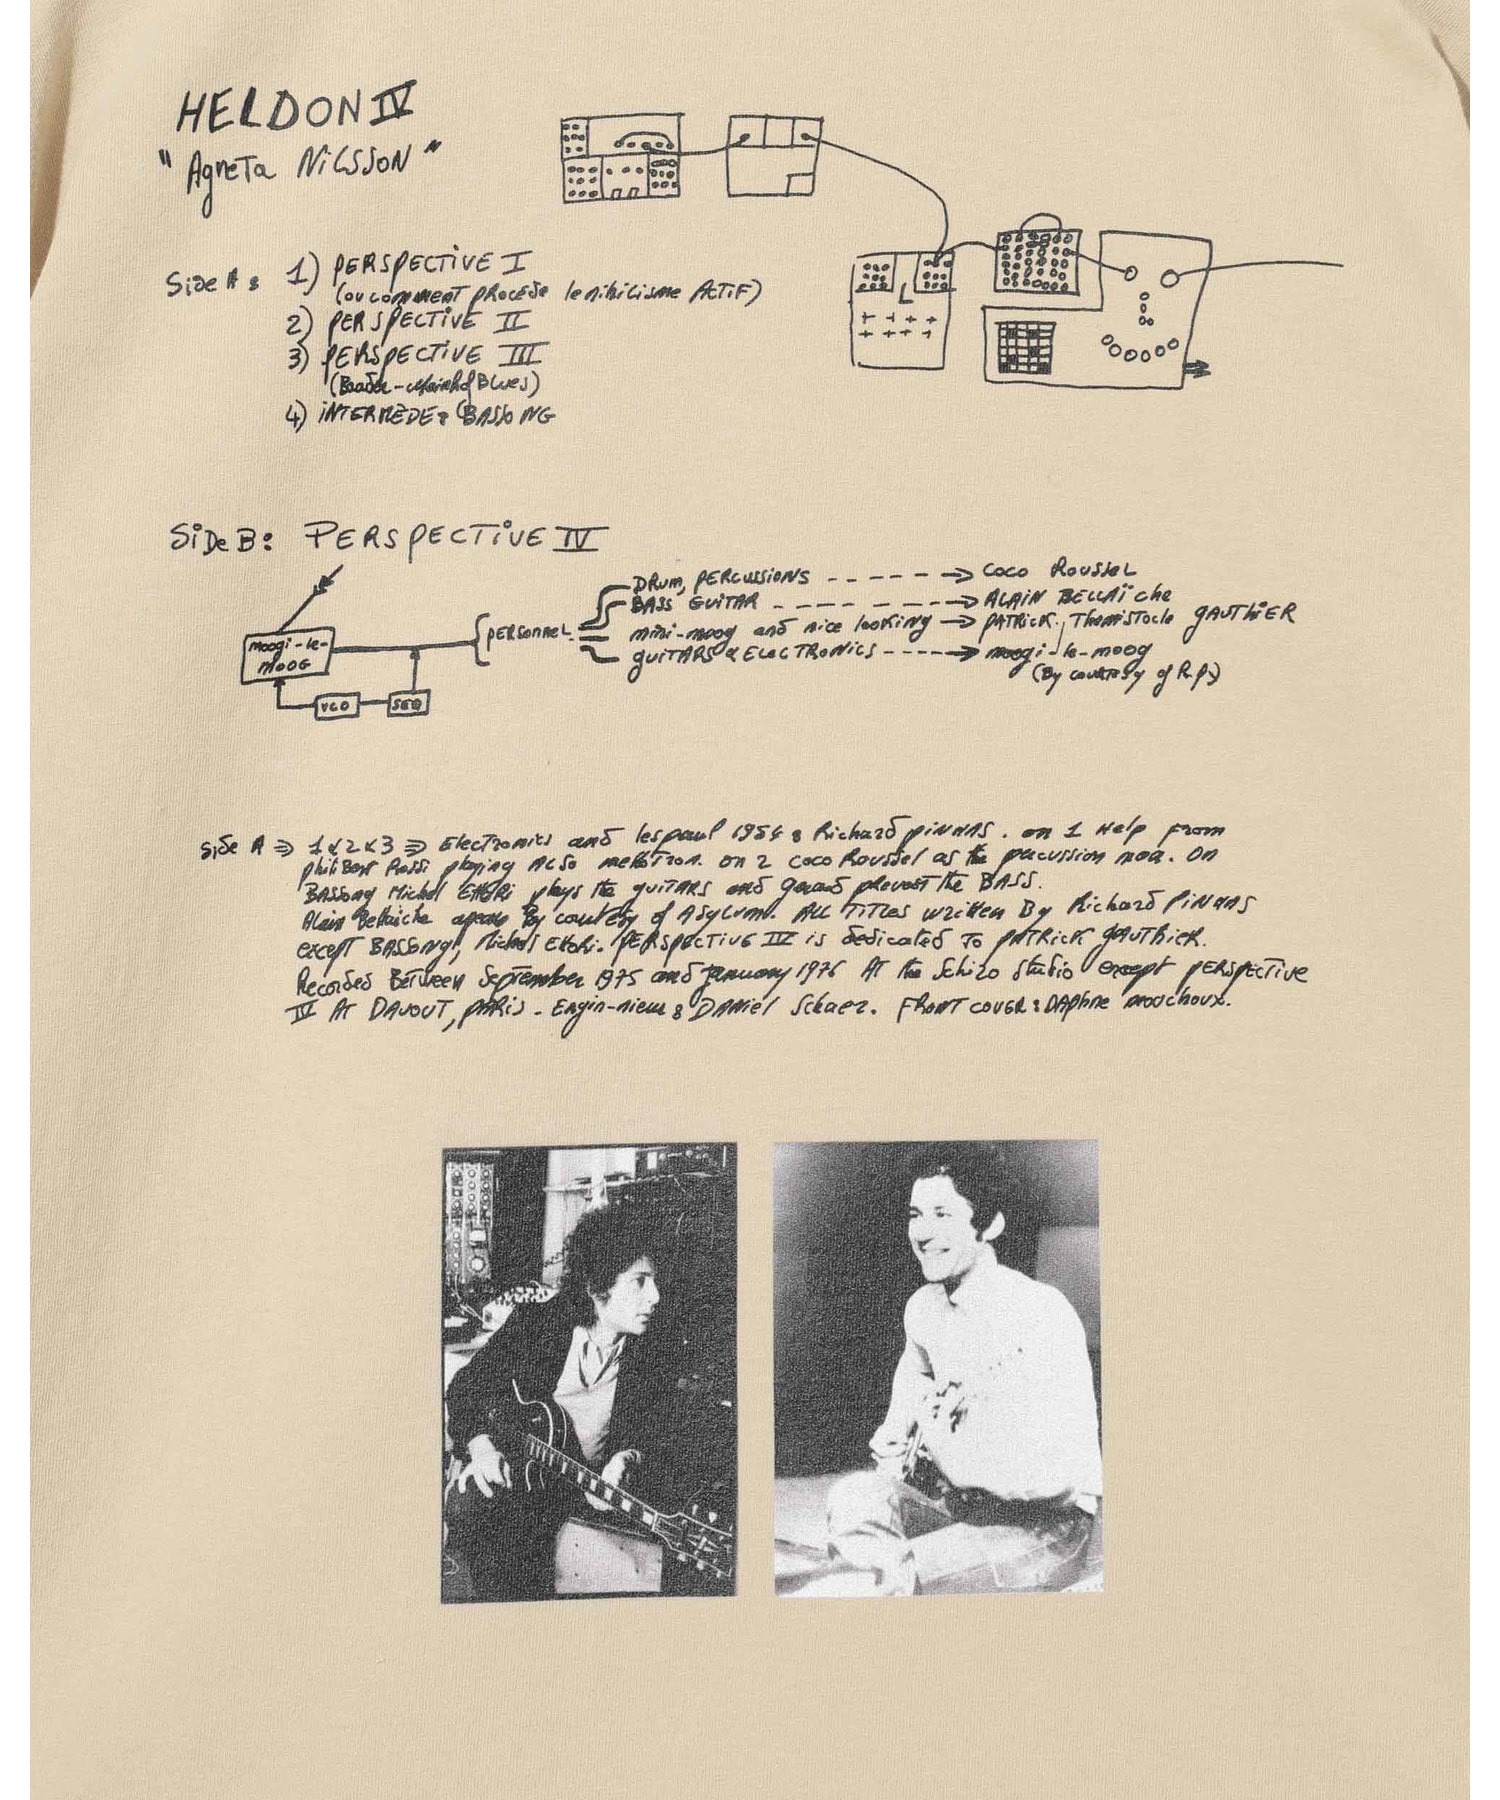 HELDON IV
"Agneta NILSSON"
Side A:
1) PERSPECTIVE I
(ou comment procède le nihilisme ACTIF)
2) PERSPECTIVE II
3) PERSPECTIVE III
(Baader-Meinhof Blues)
4) INTERMEDE: BASSONG
Side B: PERSPECTIVE IV
moogi-le-
MOOG
VCO
SEQ
PERSONNEL
DRUM, PERCUSSIONS ------> COCO ROUSSEL
BASS GUITAR ------> ALAIN BELLAïche
mini-moog and nice looking -> PATRICK Themistocle GAUTHIER
guitars & ELECTRONICS ----> moogi-le-moog
(By courtesy of R.P.)
Side A => 1&2&3 => Electronics and lespaul 1954: Richard PINHAS. on 1 Help From
philibert Rossi playing ALSO mellotron. on 2 Coco Roussel as the percussion man. On
BASSong Michel Ettori plays the guitars and Gerard prevost the BASS.
Alain Bellaiche appears By courtesy of Asylum. ALL TITLES written By Richard PINHAS
except BASSong, Michel Ettori. PERSPECTIVE IV is dedicated To PATRICK GAUTHIER.
Recorded Between September 1975 and January 1976 AT the Schizo Studio except PERSPECTIVE
IV AT DAVOUT, PARIS - Engin-nieur: DANIEL Schaer. FRONT COVER: DAphne mouchoux.